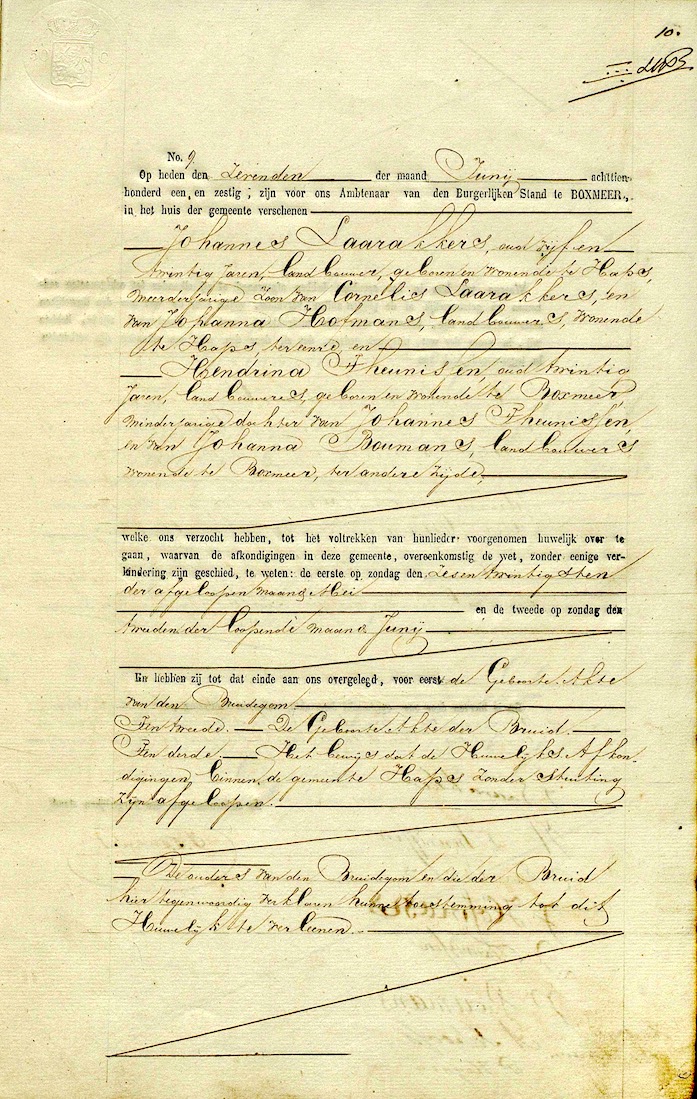 10.
No. 9.
Op heden den Zevenden der maand Junij achttien-
honderd een en zestig, zijn voor ons Ambtenaar van den Burgerlijken Stand te BOXMEER,
in het huis der gemeente verschenen
Johannes Laarakkers, oud vijf en
twintig Jaren, landbouwer, geboren en Wonende te Haps,
Meerderjarige Zoon van Cornelis Laarakkers, en
van Johanna Hofmans, landbouwers, Wonende
te Haps, ter eenre, en
Hendrina Theunissen oud twintig
Jaren, landbouweres, geboren en Wonende te Boxmeer
Minderjarige dochter van Johannes Theunissen,
en van Johanna Boumans, landbouwers
Wonende te Boxmeer, ter andere Zijde,
welke ons verzocht hebben, tot het voltrekken van hunlieder voorgenomen huwelijk over te
gaan, waarvan de afkondigingen in deze gemeente, overeenkomstig de wet, zonder eenige ver-
hindering zijn geschied, te weten: de eerste op zondag den Zesentwintigsten
der afgeloopen Maand Mei
en de tweede op zondag den
tweeden der loopende Maand Junij
En hebben zij tot dat einde aan ons overgelegd, voor eerst de Geboorte Akte
van den Bruidegom
Ten tweede. De Geboorte Akte der Bruid.
Ten derde. Het bewijs dat de Huwelijks Afkon-
digingen, binnen de gemeente Haps zonder stuiting
zijn afgeloopen.
De ouders van den Bruidegom en die der Bruid
hier tegenwoordig verklaren hunne toestemming tot dit
Huwelijk te verleenen.